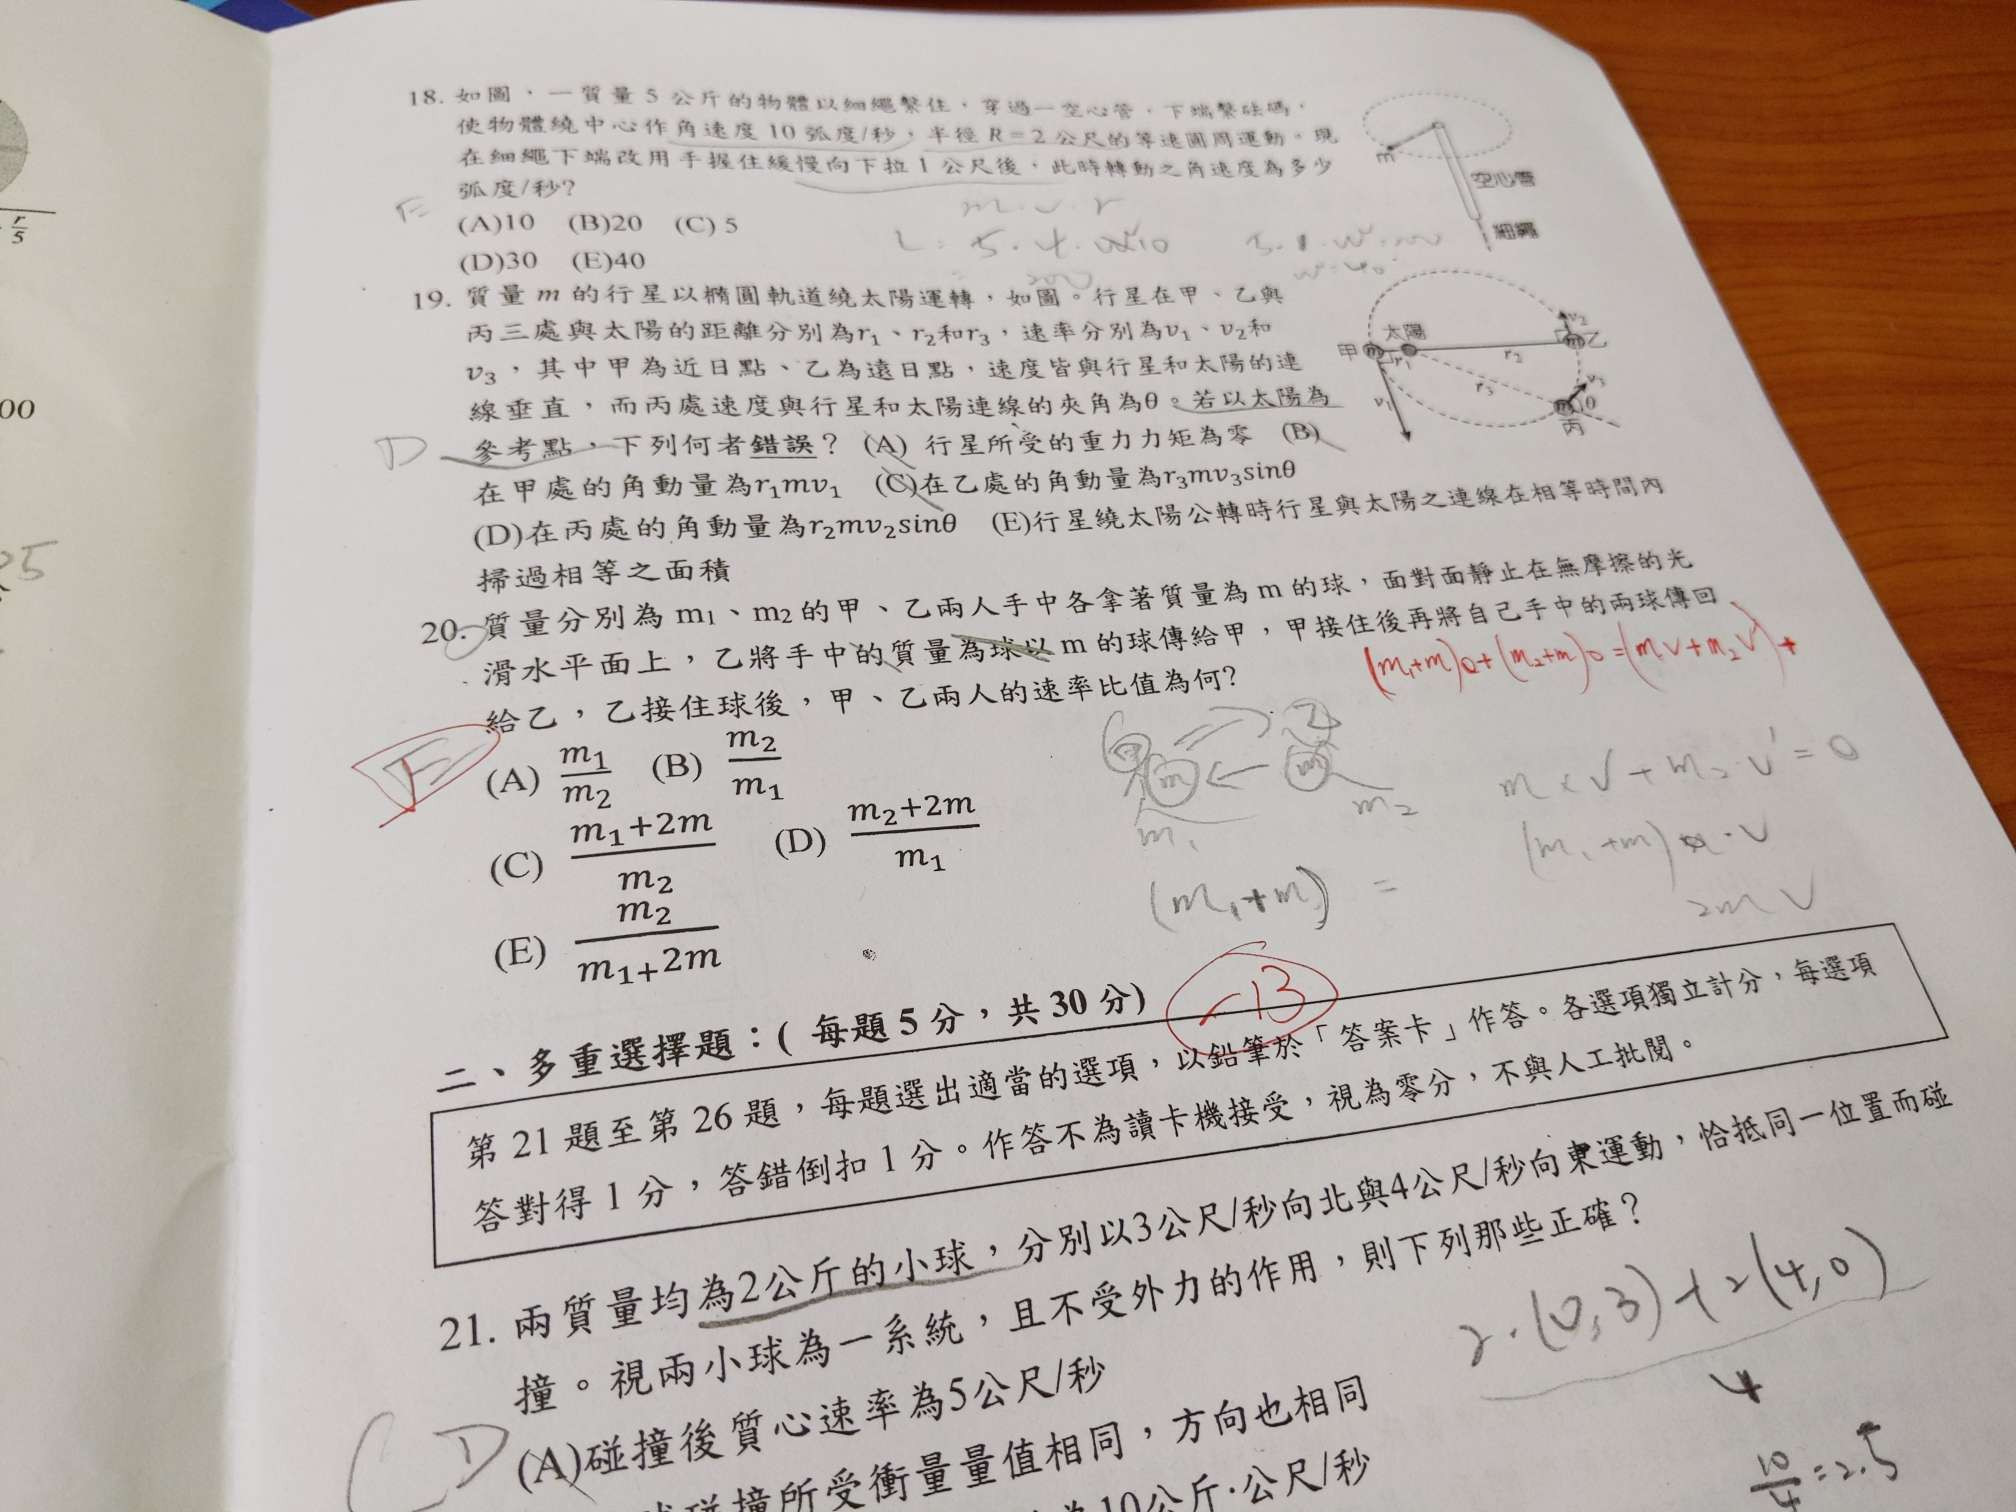 18. 如圖，一質量 5 公斤的物體以細繩繫住，穿過一空心管，下端繫砝碼，
使物體繞中心作角速度 10 弧度/秒，半徑 R=2 公尺的等速圓周運動。現
在細繩下端改用手握住緩慢向下拉 1 公尺後，此時轉動之角速度為多少
弧度/秒?
(A)10 (B)20 (C) 5
(D)30 (E)40
m
空心管
細繩
E
m．v．r
19. 質量 m 的行星以橢圓軌道繞太陽運轉，如圖。行星在甲、乙與
丙三處與太陽的距離分別為r₁、r₂和r₃，速率分別為v₁、v₂和
v₃，其中甲為近日點、乙為遠日點，速度皆與行星和太陽的連
線垂直，而丙處速度與行星和太陽連線的夾角為θ。若以太陽為
參考點，下列何者錯誤？ (A) 行星所受的重力力矩為零 (B)
在甲處的角動量為r₁mv₁ (C)在乙處的角動量為r₃mv₃sinθ
(D)在丙處的角動量為r₂mv₂sinθ (E)行星繞太陽公轉時行星與太陽之連線在相等時間內
掃過相等之面積
D
太陽
甲 m r₁ r₂ m 乙 v₂
r₃ v₃
v₁ m θ
丙
20. 質量分別為 m₁、m₂ 的甲、乙兩人手中各拿著質量為 m 的球，面對面靜止在無摩擦的光
滑水平面上，乙將手中的質量為球以 m 的球傳給甲，甲接住後再將自己手中的兩球傳回
給乙，乙接住球後，甲、乙兩人的速率比值為何?
(m₁+m)0+(m₂+m)0=(m₁v+m₂v')+
E
(A) m₁/m₂ (B) m₂/m₁
(C) (m₁+2m)/m₂ (D) (m₂+2m)/m₁
(E) m₂/(m₁+2m)
甲 m 乙 m
m₁ m₂
(m₁+m) =
m×v+m₂·v'=0
(m₁+m)·v
2mv
二、多重選擇題：( 每題 5 分，共 30 分)
-13
第 21 題至第 26 題，每題選出適當的選項，以鉛筆於「答案卡」作答。各選項獨立計分，每選項
答對得 1 分，答錯倒扣 1 分。作答不為讀卡機接受，視為零分，不與人工批閱。
21. 兩質量均為2公斤的小球，分別以3公尺/秒向北與4公尺/秒向東運動，恰抵同一位置而碰
撞。視兩小球為一系統，且不受外力的作用，則下列那些正確？
(A)碰撞後質心速率為5公尺/秒
碰撞所受衝量量值相同，方向也相同
為10公斤·公尺/秒
CD
2·(0,3)+2(4,0)
4
10/4=2.5
r/5
00
25